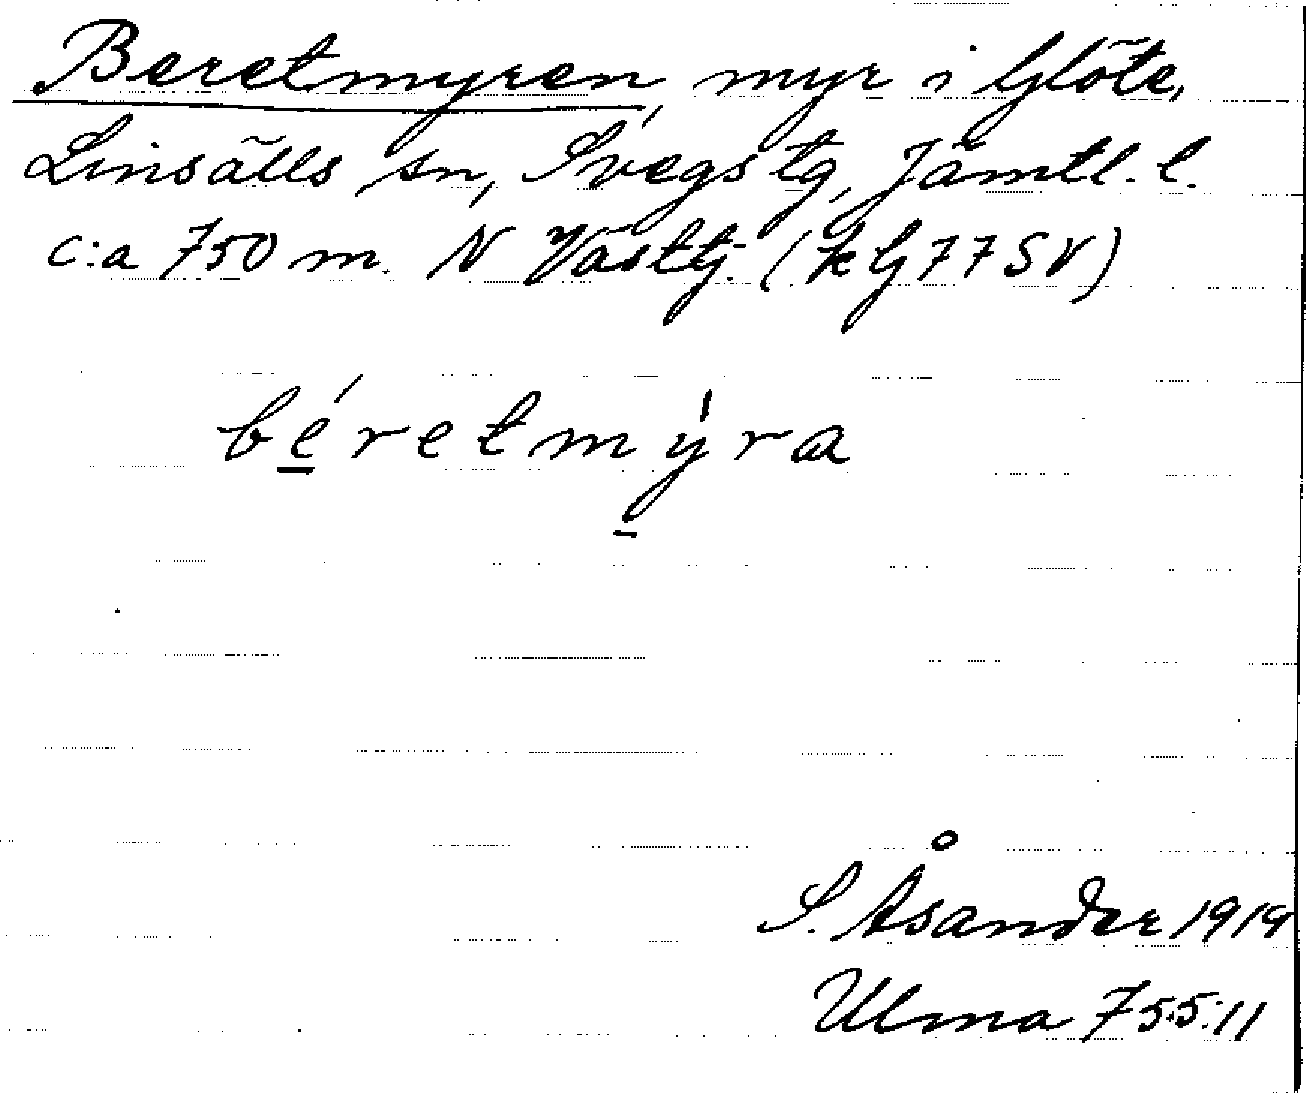 Beretmyren, myr i Glöte,
Linsälls sn, Svegs tg, Jämtl. l.
c:a 750 m. N Västtj. (k bj 77 SV)
béretmýra
S. Åsander 1919
Ulma 755:11